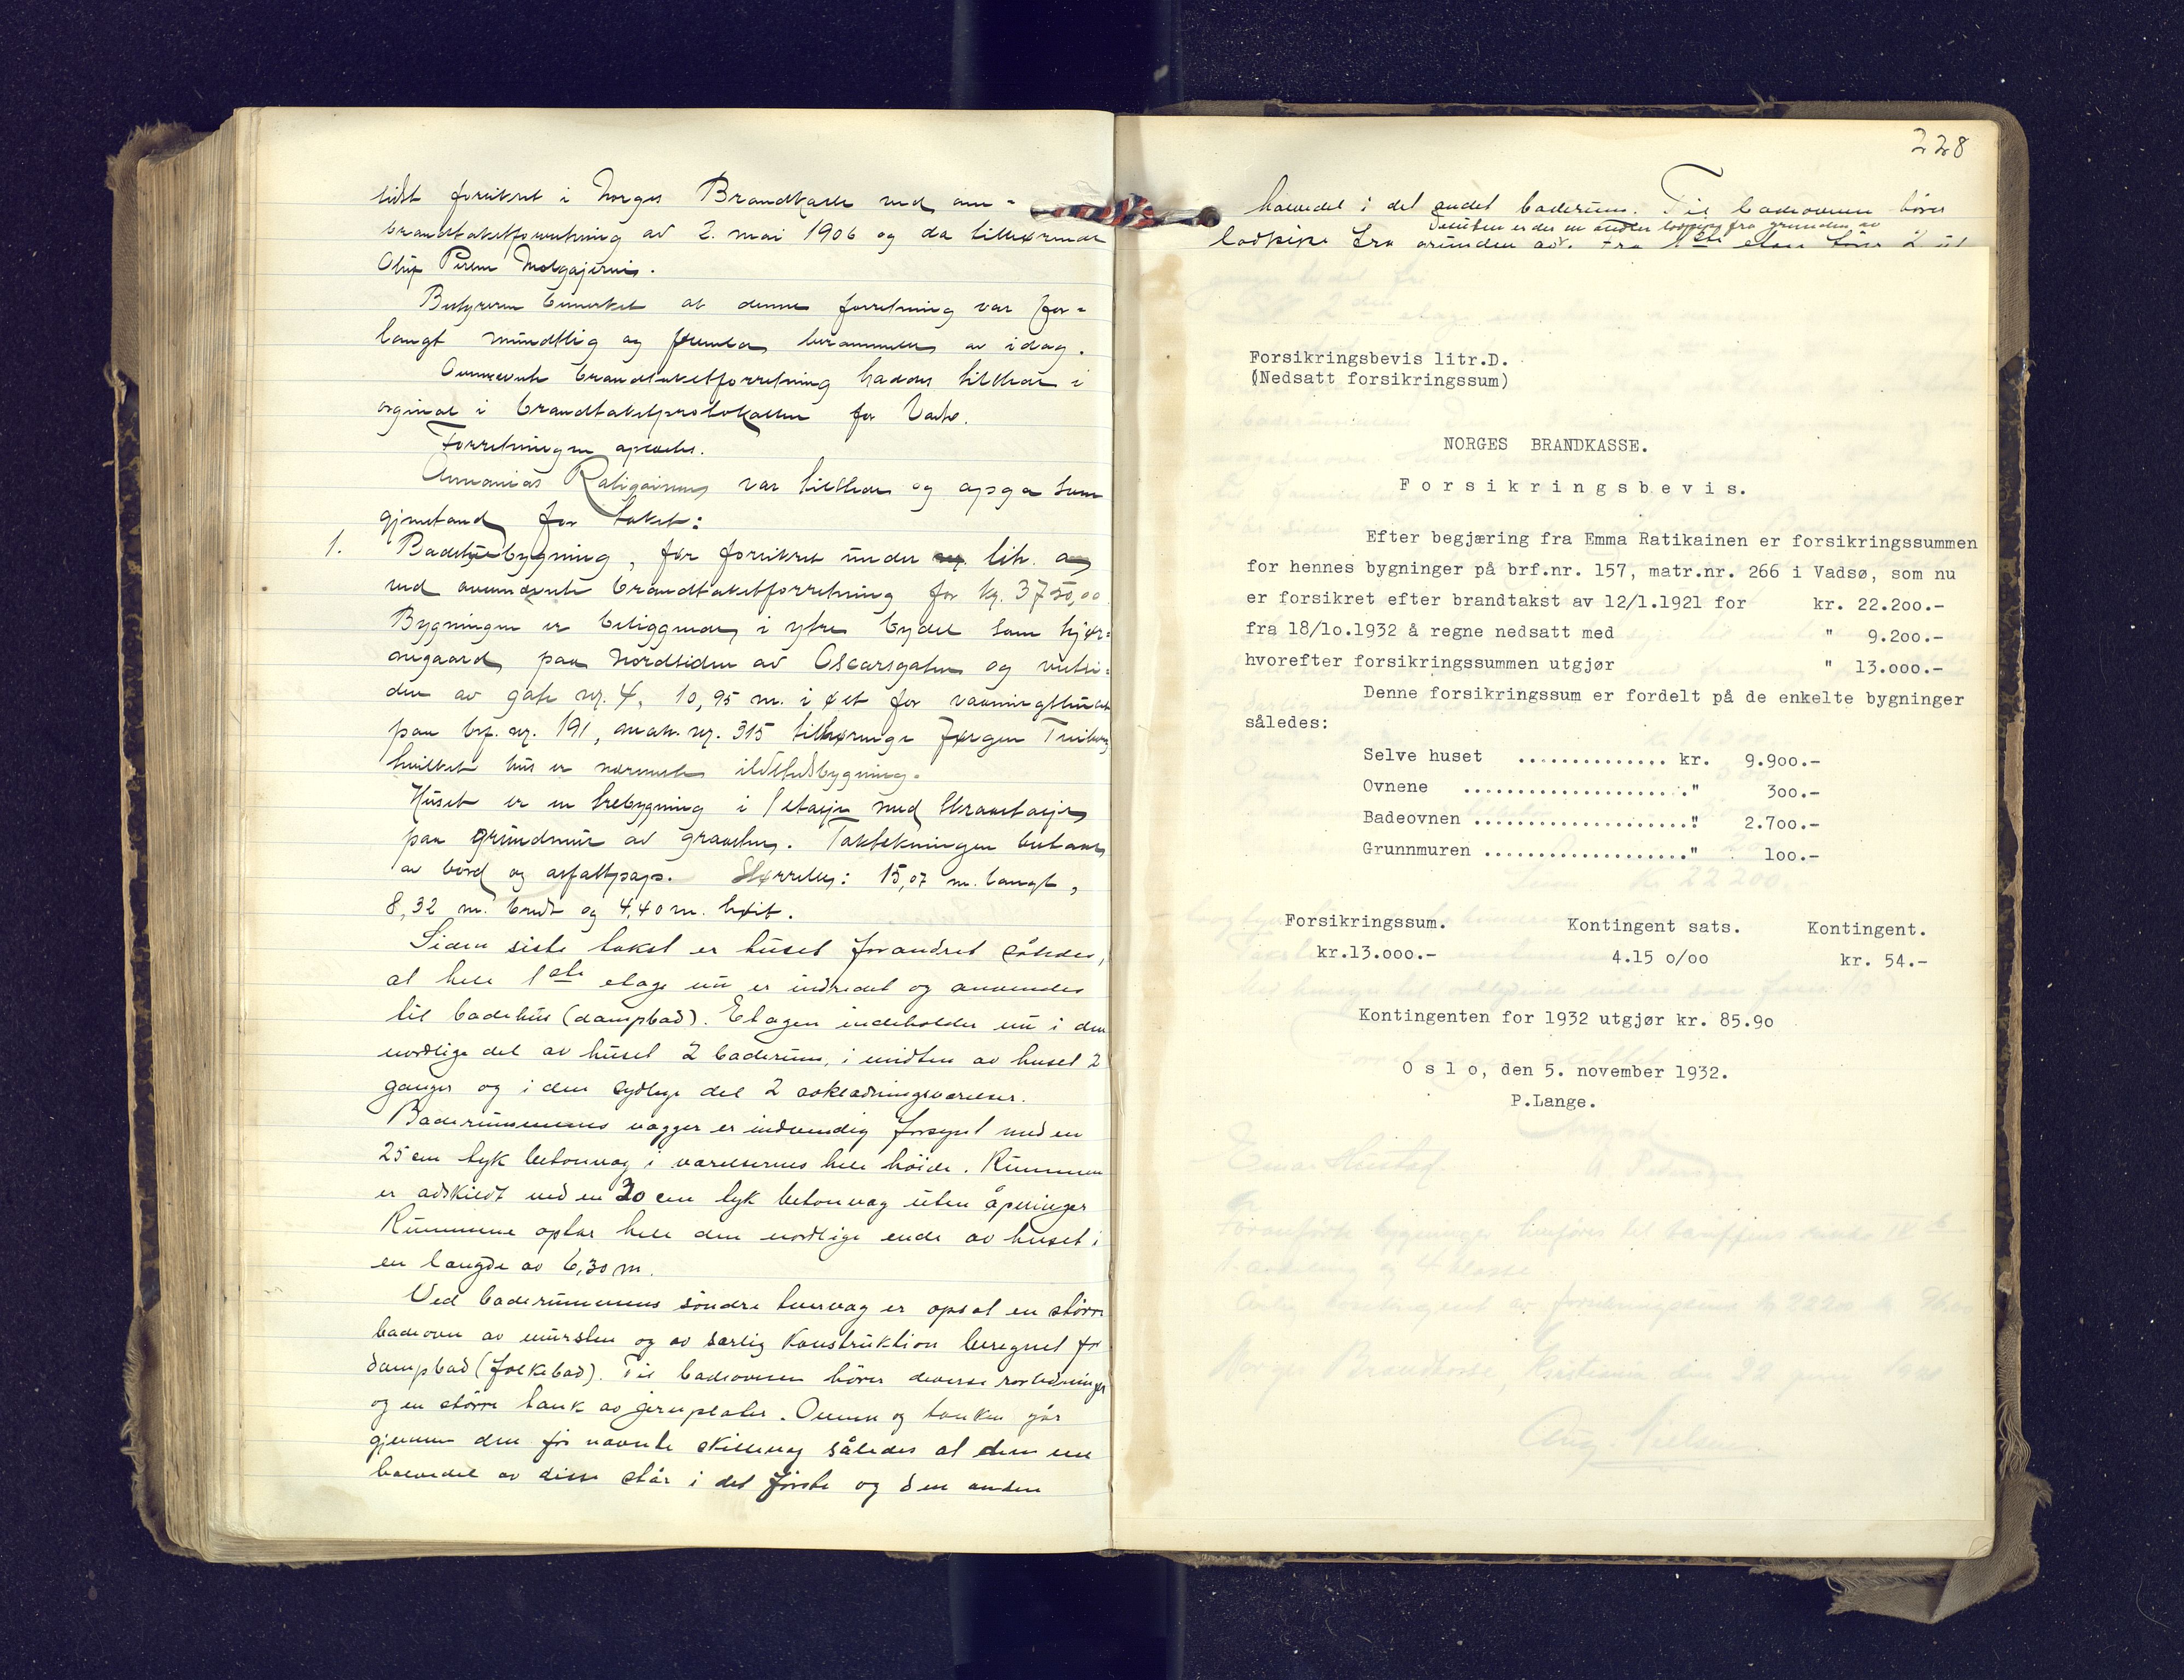 sidst forsikret i Norges Brandkasse ved om-
brandtakstforretning av 2. mai 1906 og da tilhørende
Bestyreren bemerket at denne forretning var for-
langt mundtlig og berammedes av idag.
Omnævnte brandtakstforretning haddes tilstede i
orginal i brandtakstprotokollen for Vadsø.
Forretningen
var tilstede og opga som
gjenstand for takst:
1. Badstubygning, før forsikret under litr. a
ved ovennævnte brandtakstforretning for kr. 3750,00
Bygningen er beliggende i ytre bydel som hjør-
negaard paa Nordsiden av Oscarsgaten og vestsi-
den av gate nr. 4, 10,95 m. i øst for vaaningshuset
paa brf. nr. 191, matr. nr. 315 tilhørende Jørgen
hvilket hus er nærmeste ildstedsbygning.
Huset er en trebygning i 1 etasje med
paa grundmur av graasten. Taktekningen bestaar
av bord og asfaltpap. Størrelse: 15,07 m. langt,
8,32 m. bredt og 4,40 m. høit.
Siden siste takst er huset forandret således,
at hele 1ste etage nu er indredet og anvendes
til badehus (dampbad). Etagen indeholder nu i den
nordlige del av huset 2 baderum, i midten av huset 2
ganger og i den sydlige del 2 avklædningsværelser.
Baderummenes vægger er indvendig forsynt med en
25 cm tyk betonvæg i værelsernes hele höide. Rummene
er adskildt ved en 30 cm tyk betonvæg uten åpninger
Rummene optar hele den nordlige ende av huset i
en længde av 6,30 m.
Ved baderummenes söndre tvervæg er opsat en större
badeovn av mursten og av særlig konstruktion beregnet for
dampbad (folkebad). Til badeovnen hörer diverse rörledninger
og en större tank av jernplater. Ovnen og tanken går
gjennem den för nævnte skillevæg således at den ene
halvedel av disse står i det förste og den anden
228
halvedel i det andet baderum. Til badeovnen hörer
Desuten er der en anden lodpipe fra grunden av
lodpipe fra grunden av. Fra 1ste etage förer 2 ut
Forsikringsbevis litr.D.
(Nedsatt forsikringssum)
NORGES BRANDKASSE.
Forsikringsbevis.
Efter begjæring fra Emma Ratikainen er forsikringssummen
for hennes bygninger på brf.nr. 157, matr.nr. 266 i Vadsø, som nu
er forsikret efter brandtakst av 12/1.1921 for kr. 22.200.-
fra 18/10.1932 å regne nedsatt med " 9.200.-
hvorefter forsikringssummen utgjør " 13.000.-
Denne forsikringssum er fordelt på de enkelte bygninger
således:
Selve huset .............. kr. 9.900.-
Ovnene ....................." 300.-
Badeovnen ....................." 2.700.-
Grunnmuren ..................." 100.-
Forsikringssum. Kontingent sats. Kontingent.
kr.13.000.- 4.15 o/oo kr. 54.-
Kontingenten for 1932 utgjør kr. 85.90
Oslo, den 5. november 1932.
P.Lange.